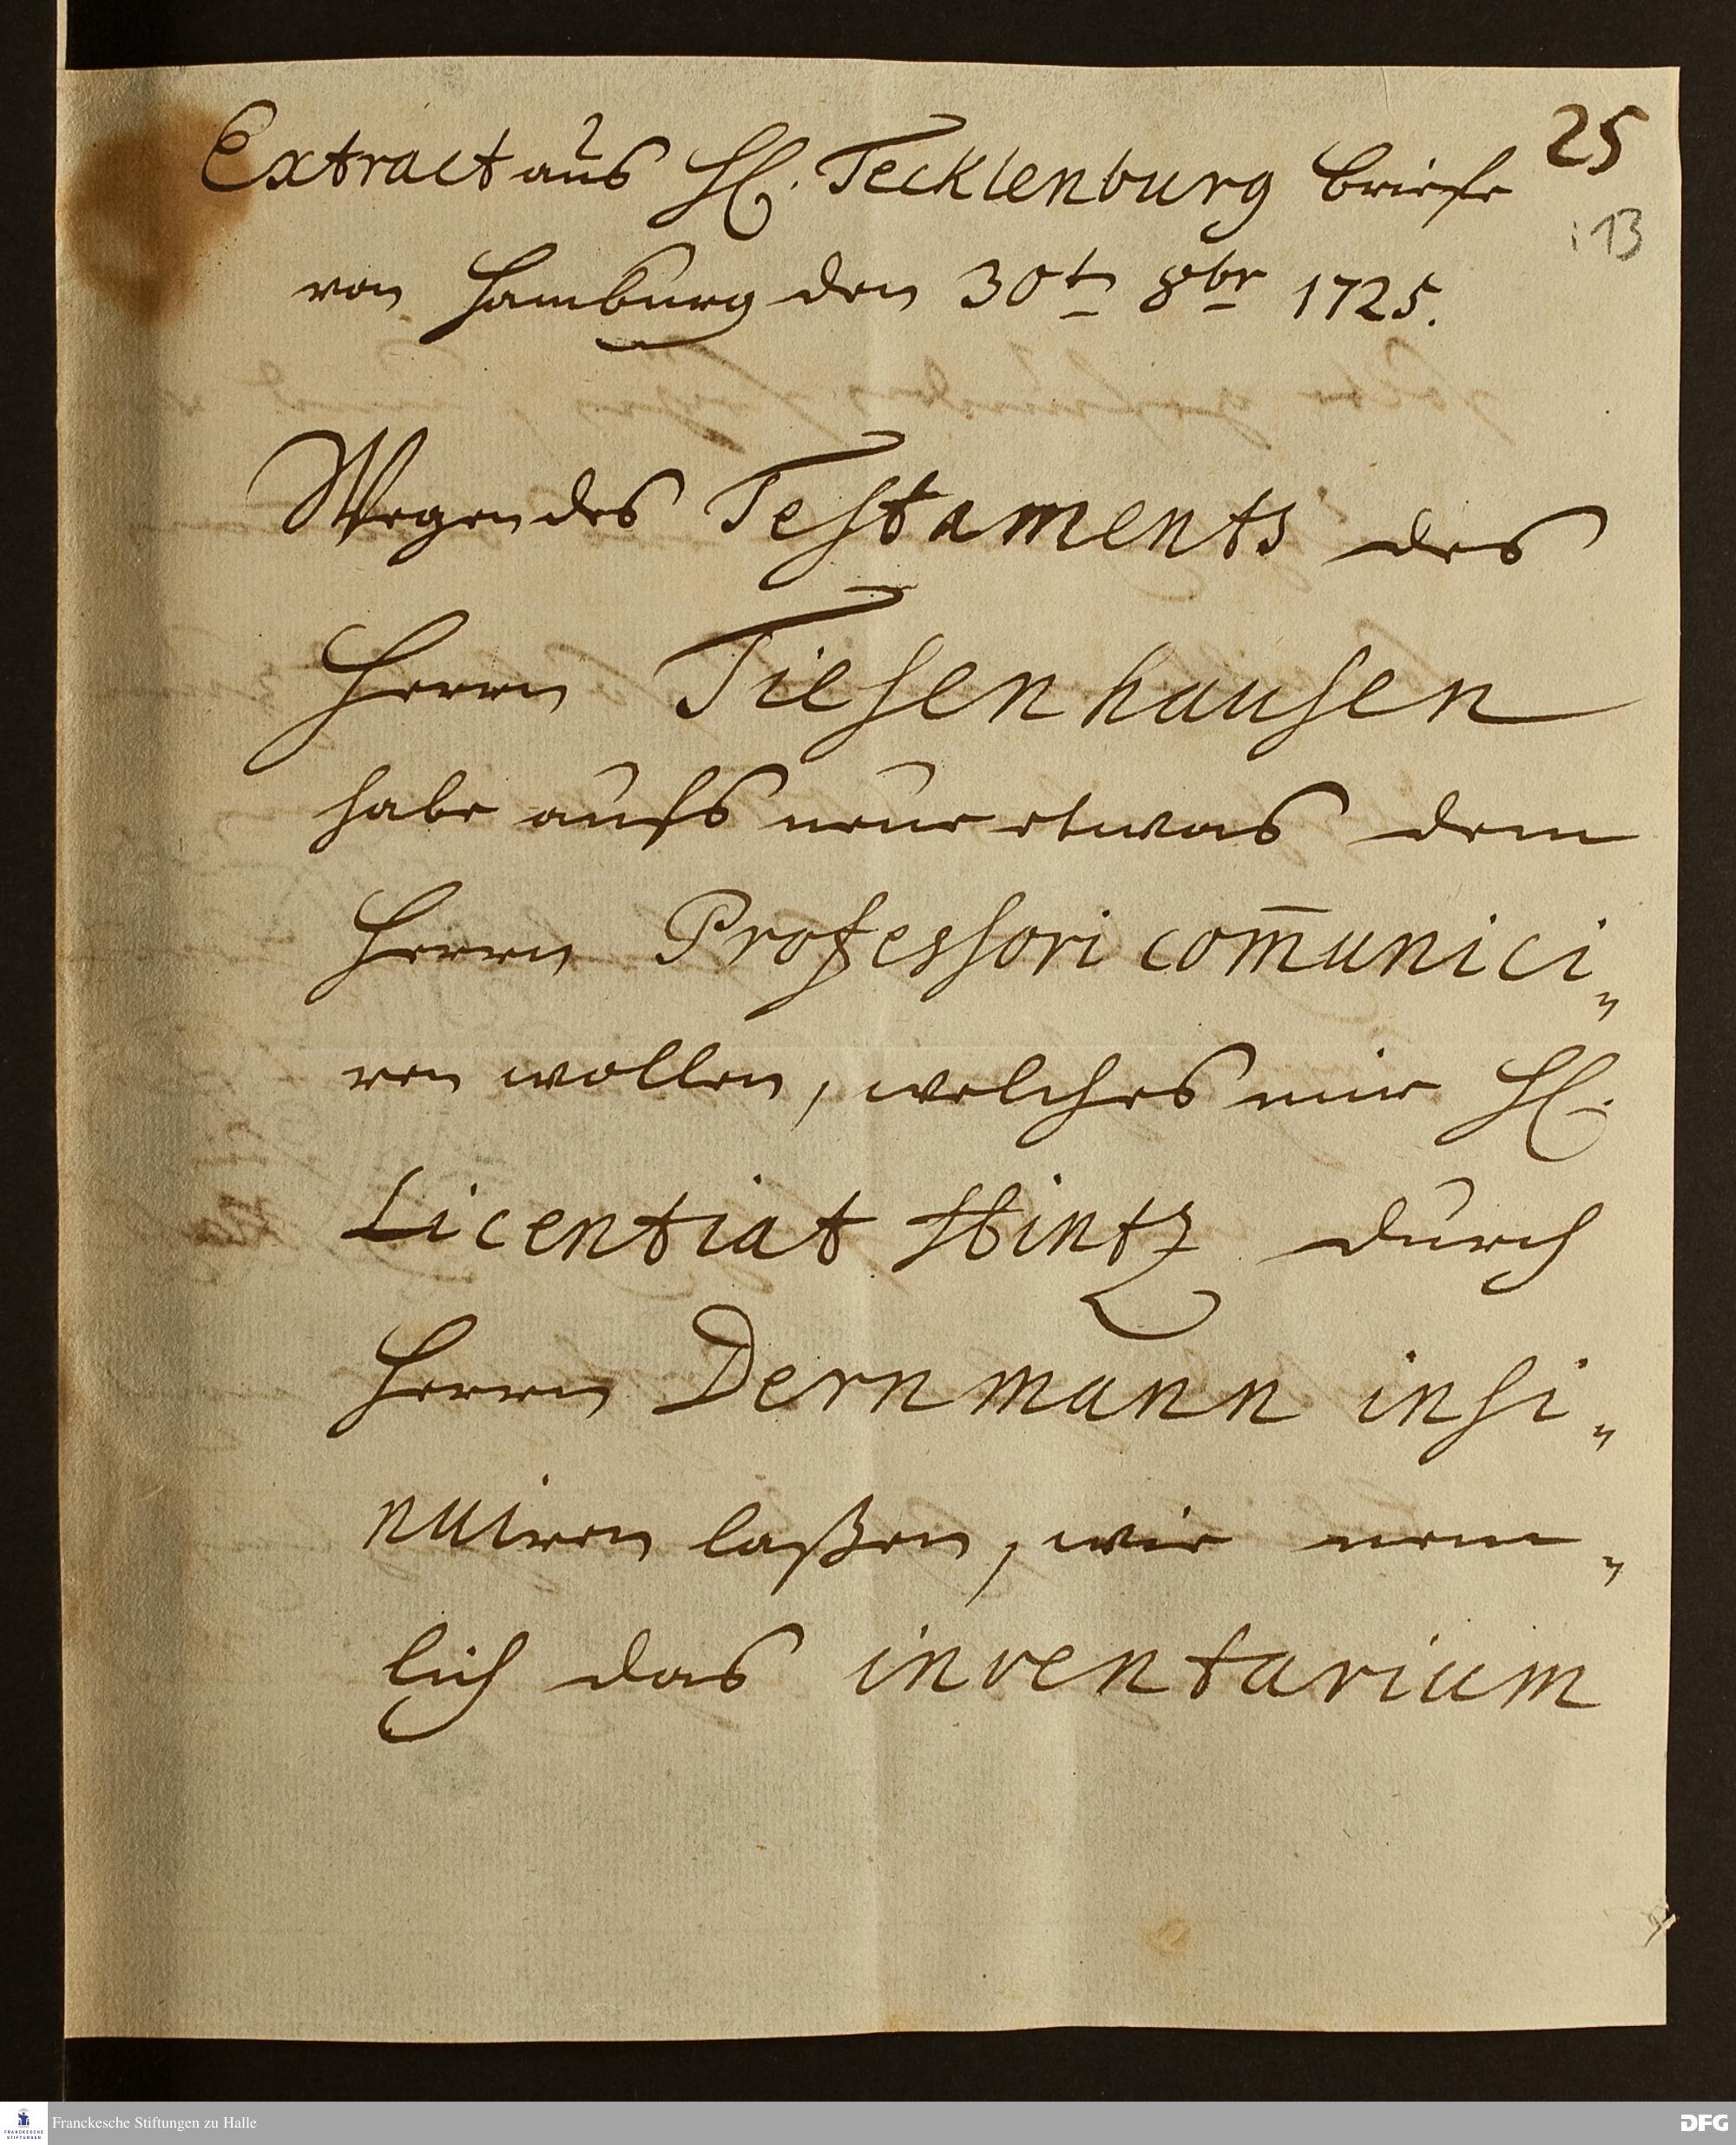 Extract aus H. Tecklenburg briefe 25
13
von Hamburg den 30t 8br 1725.
Wegen des Testaments des
Herrn Tiesenhausen
habe aufs neue etwas dem
Herrn Professori com̅unici„
ren wollen, welches mir H.
Licentiat Hintz durch
Herrn Dernmann insi„
nuiren laßen, wie nem„
lich das inventarium
Franckesche Stiftungen zu Halle
FRANCKESCHE STIFTUNGEN
DFG